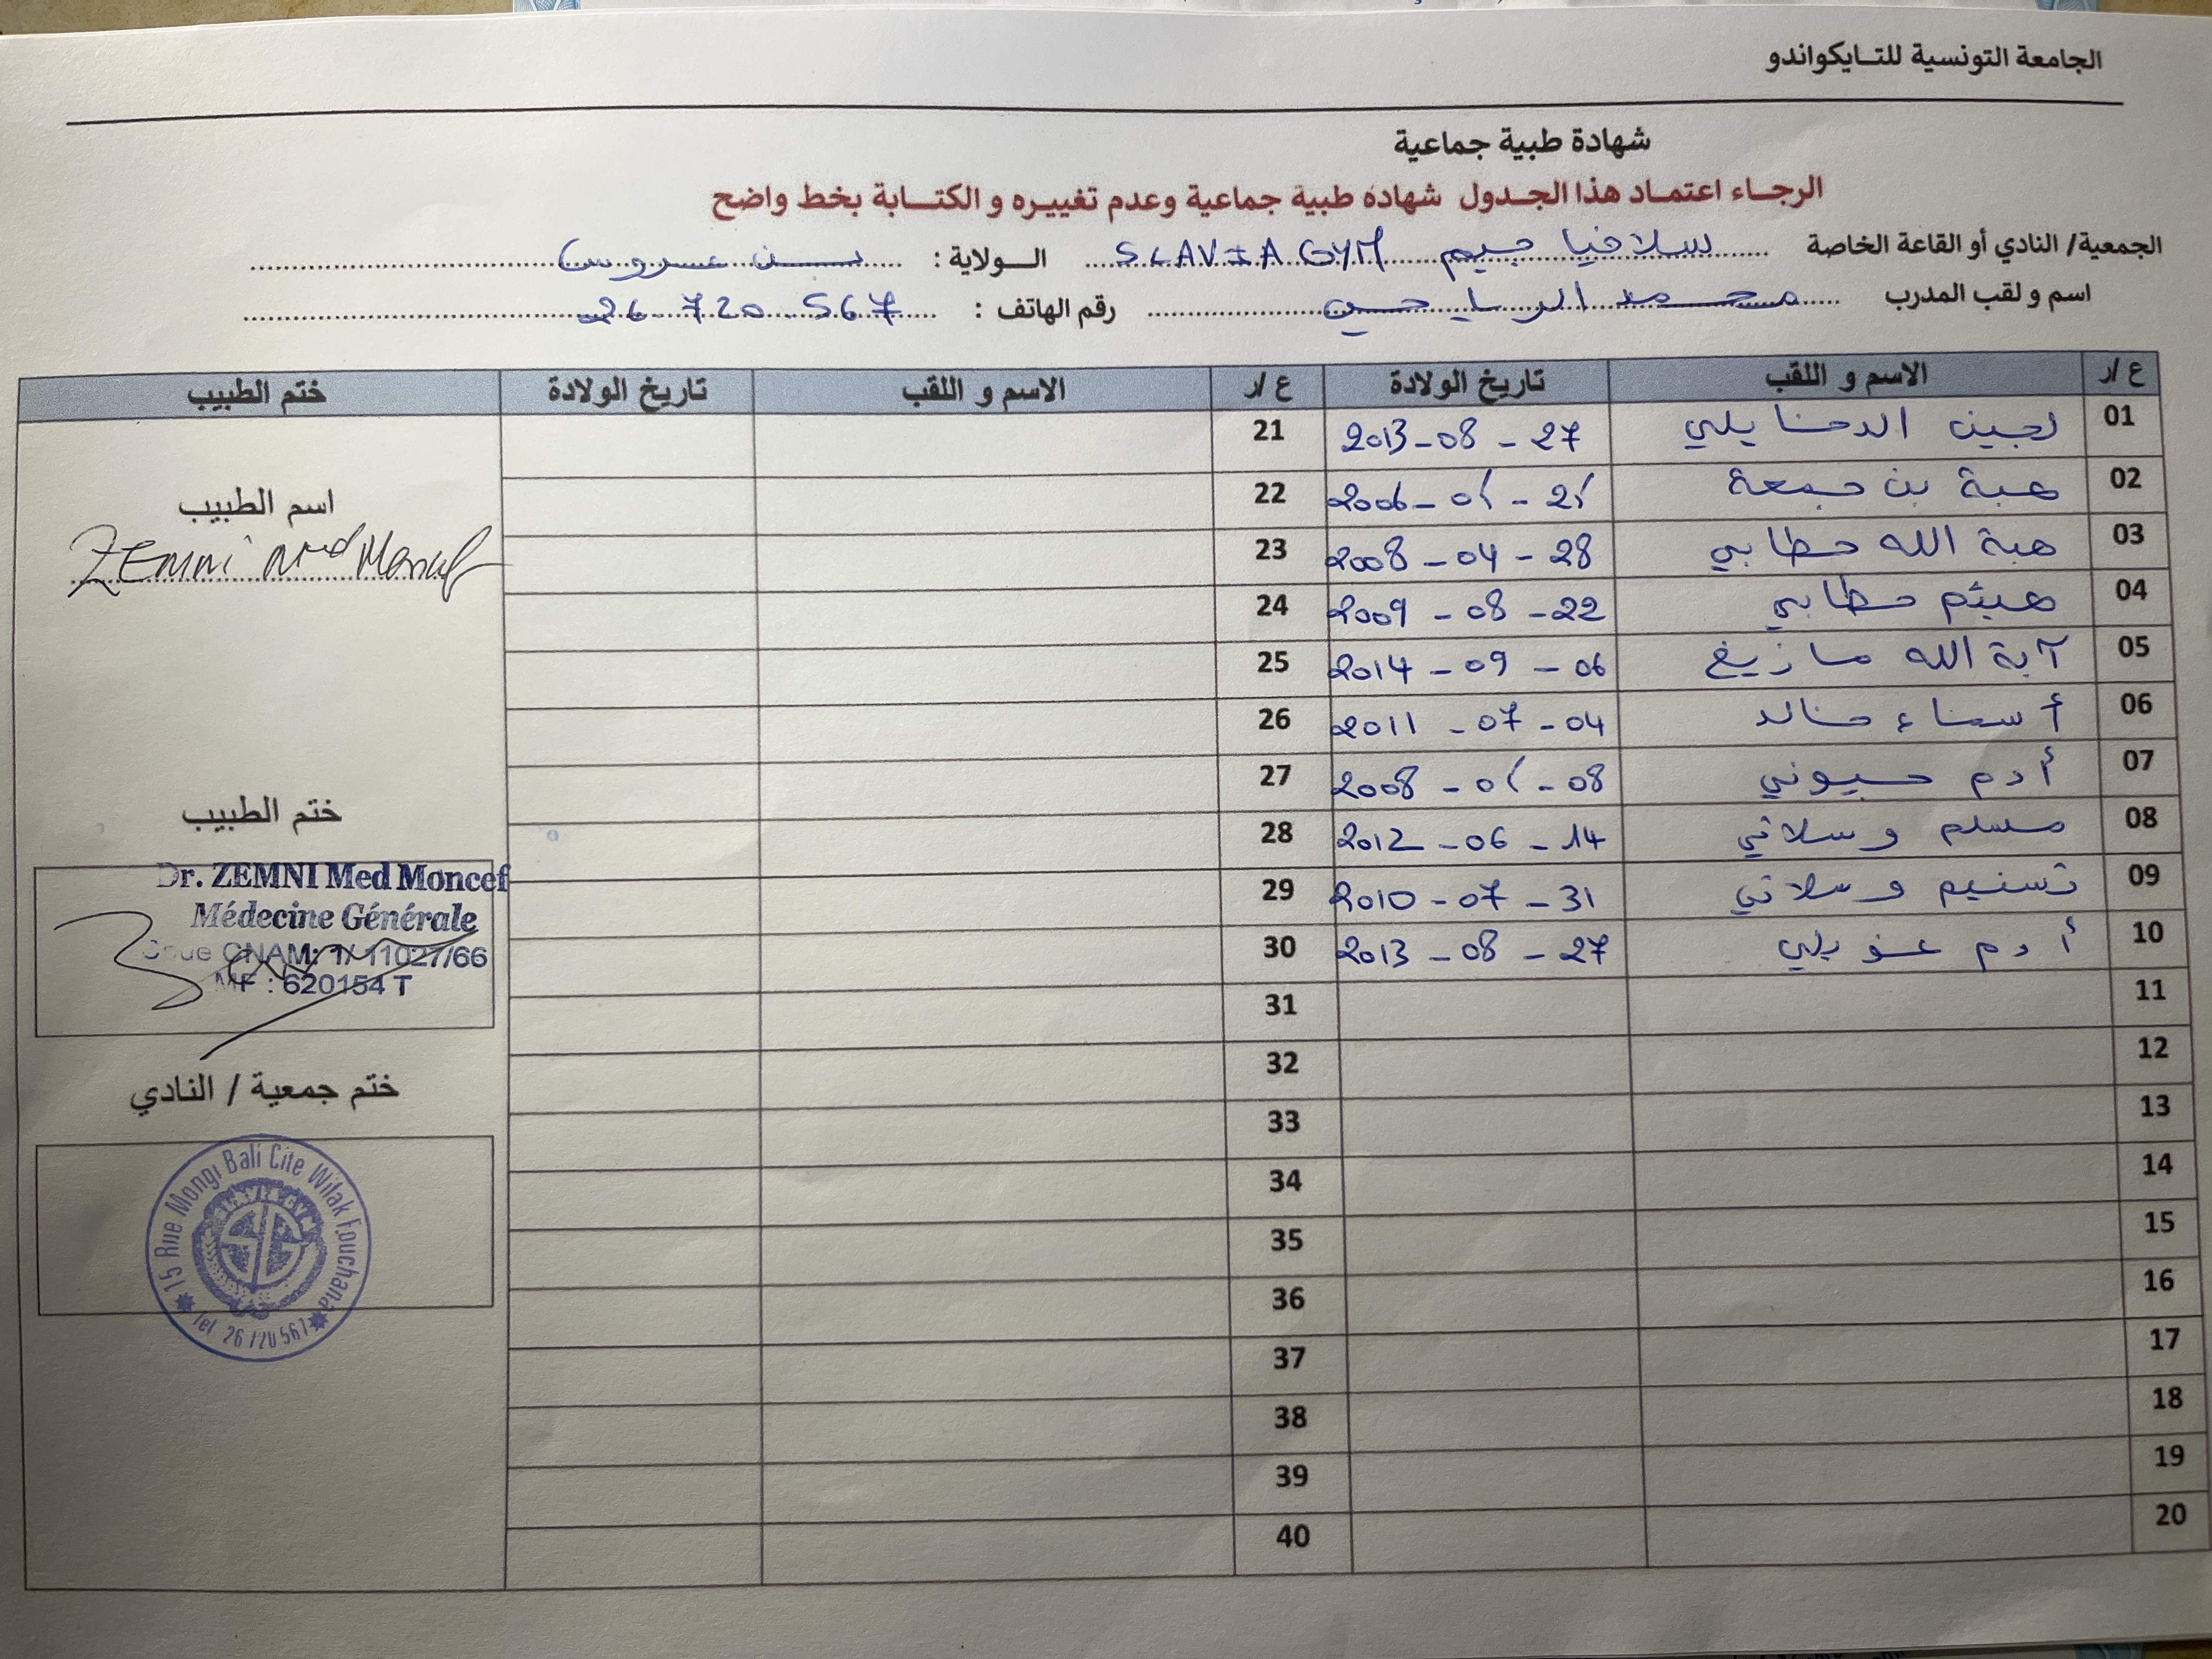 الجامعة التونسية للتايكواندو
شهادة طبية جماعية
الرجاء اعتماد هذا الجدول شهادة طبية جماعية وعدم تغييره و الكتابة بخط واضح
الجمعية/ النادي أو القاعة الخاصة سلافيا جيم SLAVIA GYM الولاية : بن عروس
اسم و لقب المدرب محمد الرياحي رقم الهاتف : 26.720.567
ع /ر الاسم و اللقب تاريخ الولادة ع /ر الاسم و اللقب تاريخ الولادة ختم الطبيب
01 لجين الدخايلي 2013-08-27 21
02 هبة بن جمعة 2006-01-21 22
03 هبة الله حطابي 2008-04-28 23
04 هيثم حطابي 2009-08-22 24
05 آية الله مازيغ 2014-09-06 25
06 أسماء خالد 2011-07-04 26
07 أدم حسيوني 2008-01-08 27
08 مسلم وسلاتي 2012-06-14 28
09 تسنيم وسلاتي 2010-07-31 29
10 أدم عزيلي 2013-08-27 30
11 31
12 32
13 33
14 34
15 35
16 36
17 37
18 38
19 39
20 40
اسم الطبيب
ZEMNI Med Moncef
ختم الطبيب
Dr. ZEMNI Med Moncef
Médecine Générale
Code CNAM: 1/ 11027/66
MF : 620154 T
ختم جمعية / النادي
15 Rue Mongi Bali Cite Wifak Fouchana
Tel 26 720 567